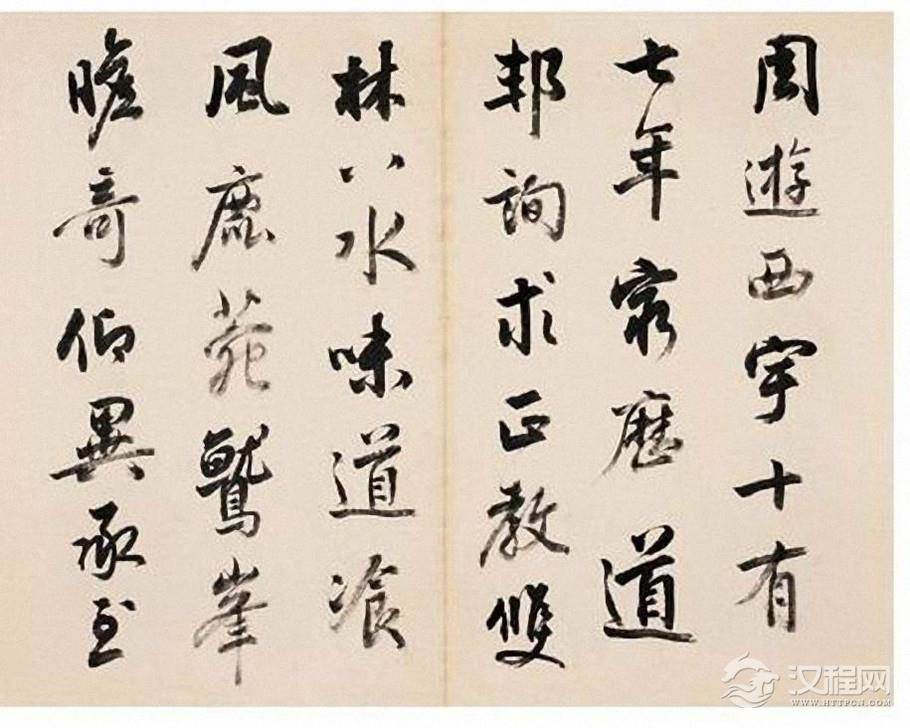 周遊西宇十有
七年窮歷道
邦詢求正教雙
林八水味道飡
風鹿菀鷲峯
瞻奇仰異承至
汉程网
WWW.HTTPCN.COM